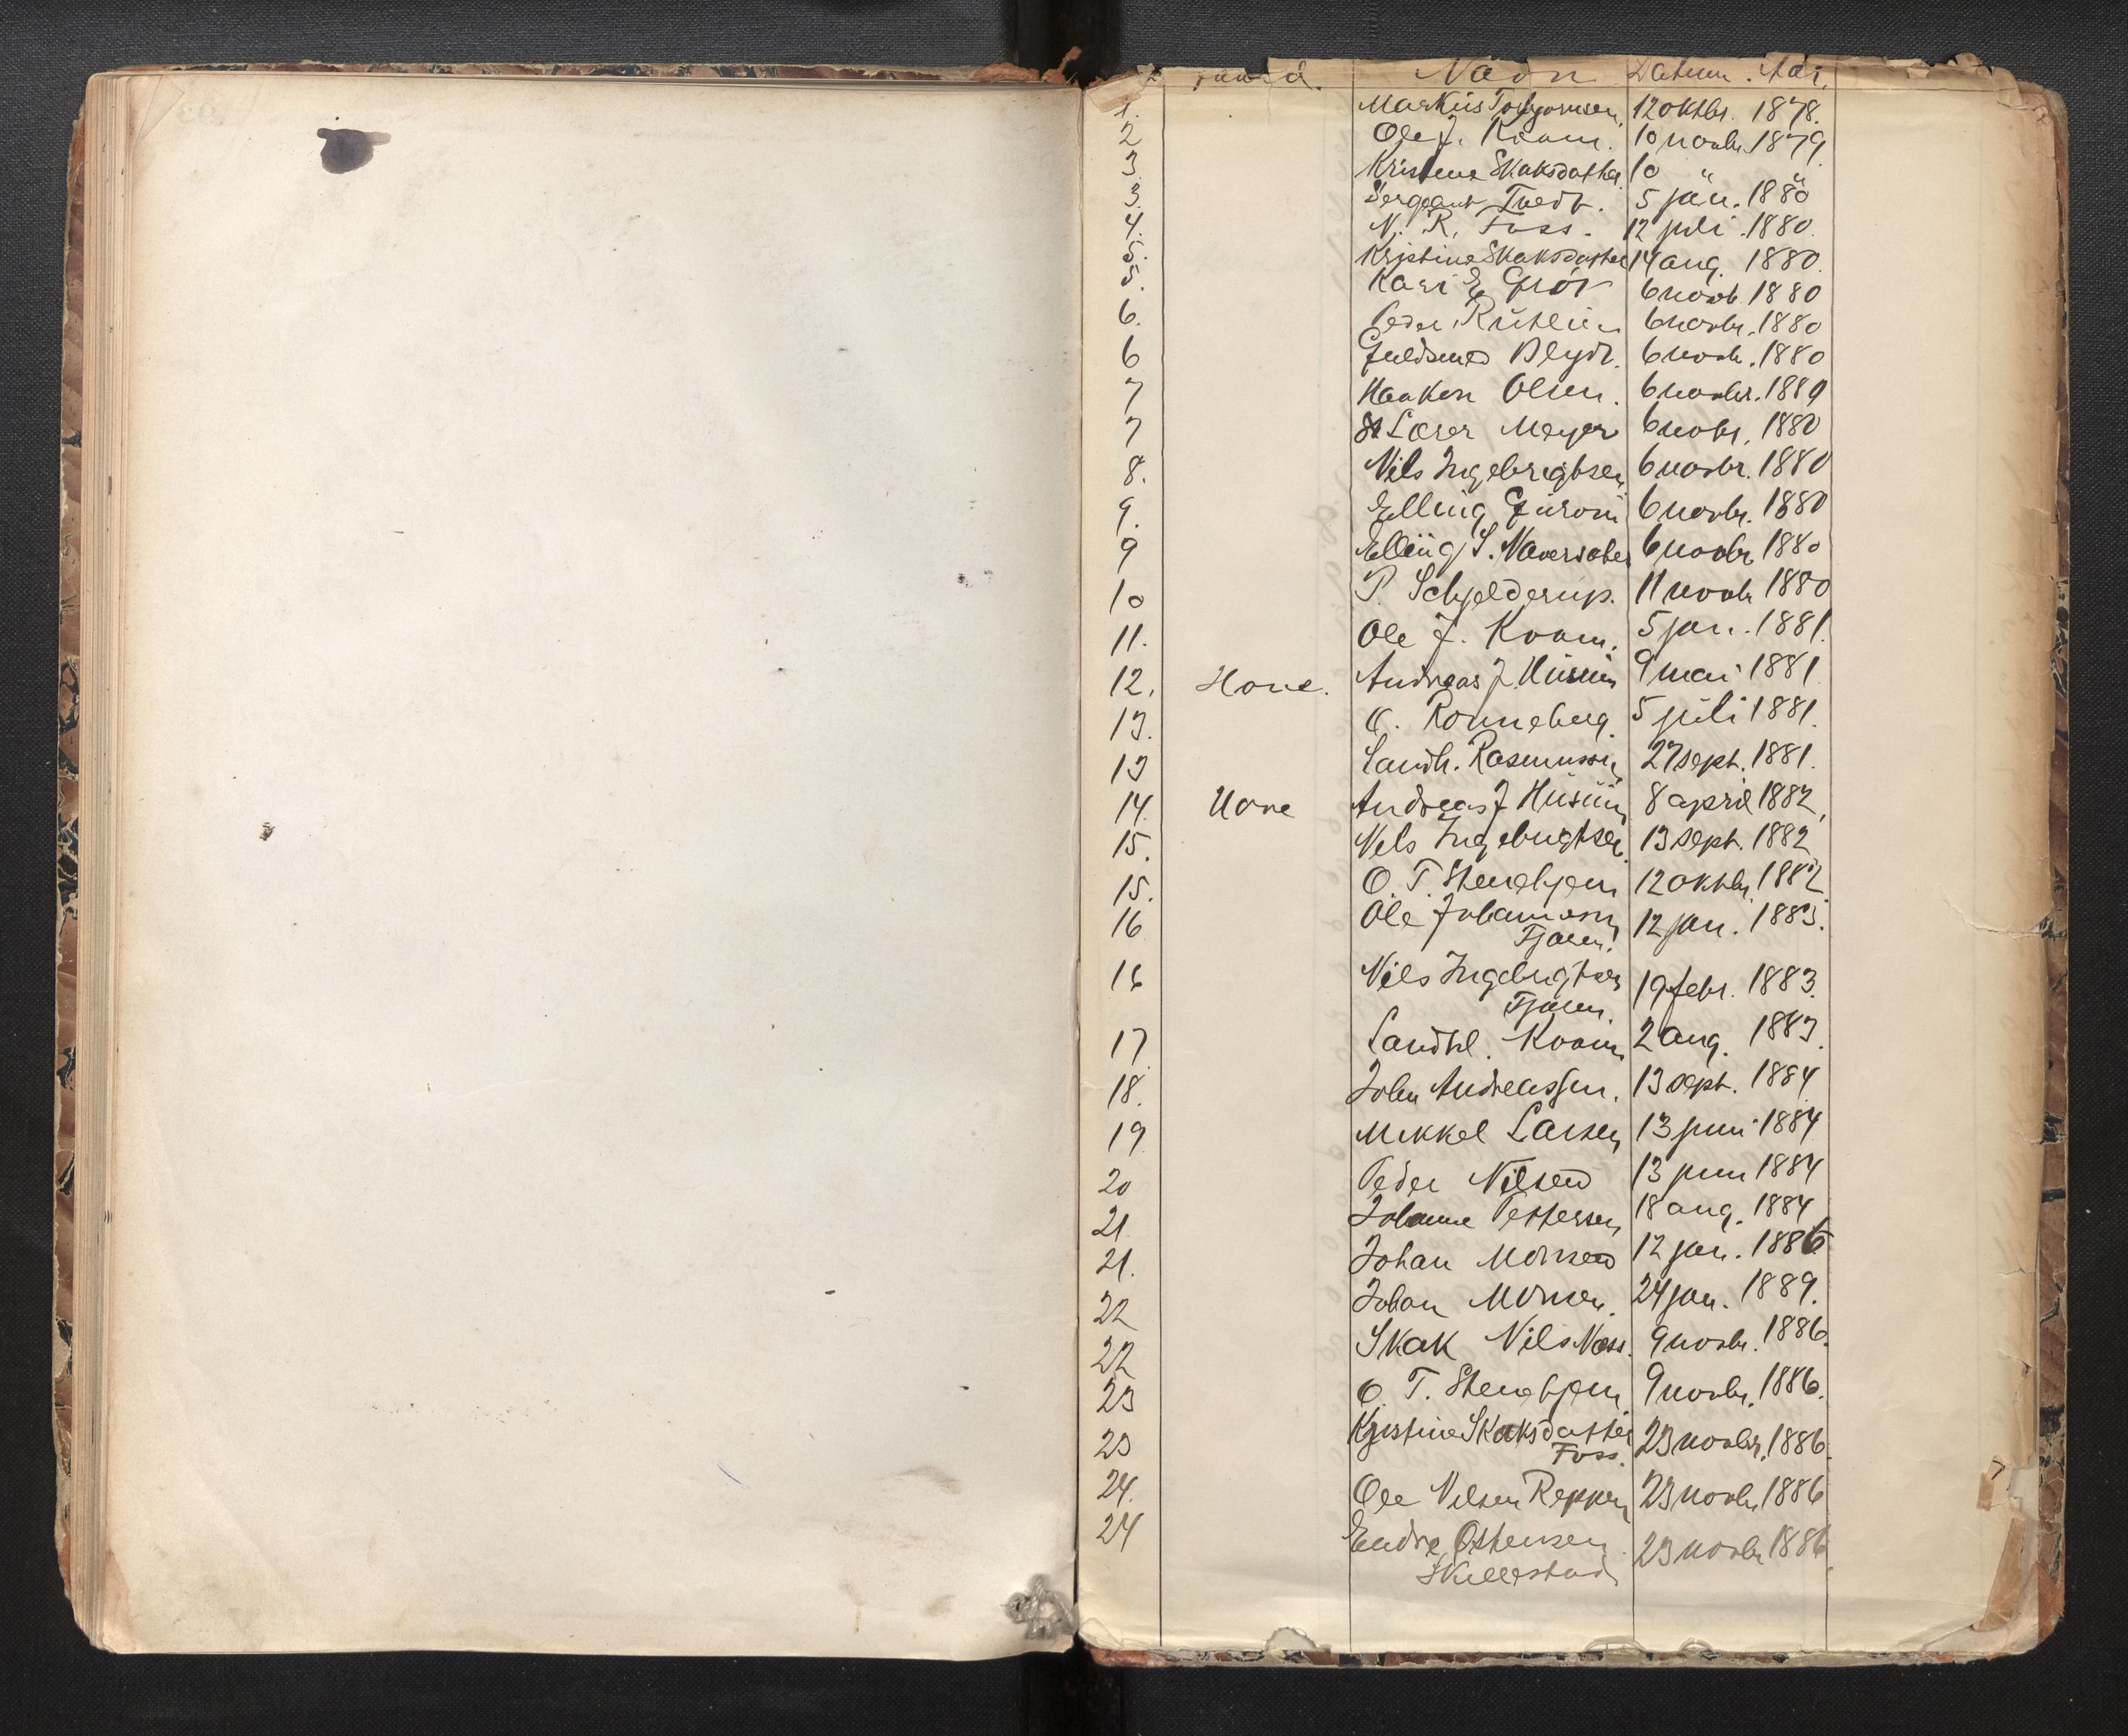 Navn Datum. Aar.
1. Markus Torbjørnsen. 12 oktbr. 1878.
2 Ole J. Kvam. 10 novbr. 1879.
3 Kristine Skaksdatter. 10 " "
3. Sergeant Tvedt. 5 jan. 1880
4. N. R. Foss. 12 juli. 1880.
5. Kristine Skaksdatter 14 aug. 1880.
5. Kari E. 6 novb. 1880
6. Peder 6 novbr. 1880
6 Guldsmed Blydt. 6 novb. 1880
7 Haakon Olsen. 6 novbr. 1880
7 Meyer 6 novbr. 1880
8. Nils Ingebrigtsen 6 novbr. 1880
9. Elling 6 novbr. 1880
9 Elling S. 6 novbr 1880
10 P. Schjelderup. 11 novb 1880
11. Ole J. Kvam. 5 jan. 1881.
12. Hove. Andreas J. Husum 9 mai 1881.
13. O. Ronneberg. 5 juli 1881.
13 Landh. Rasmussen 27 sept. 1881.
14. Hove Andreas J Husum 8 april 1882.
15. Nels Ingebrigtsen. 13 sept. 1882
15. O. T. Stenehjem 12 oktbr. 1882
16 Ole Johannesen 12 jan. 1883.
Tjøren.
16 Nils Ingebrigtsen 19 febr. 1883.
Tjøren.
17 Landhl. Kvam 2 aug. 1883.
18. John Andreassen. 13 sept. 1884
19 Mikkel Larsen 13 juni 1884
20 Peder Nilsen 13 juni 1884
21. Johanne Pettersen 18 aug. 1884
21. Johan Monsen 12 jan. 1886
22 Johan Monsen. 24 jan. 1889.
22 Skak Nils Næss. 9 novbr. 1886.
23 O. T. Stenehjem 9 novbr. 1886.
23 Kristine Skaksdatter 23 novbr. 1886.
Foss.
24. Ole Nilsen Reppen 23 novbr 1886
24 Endre Østensen 23 novbr 1886
Skillestad